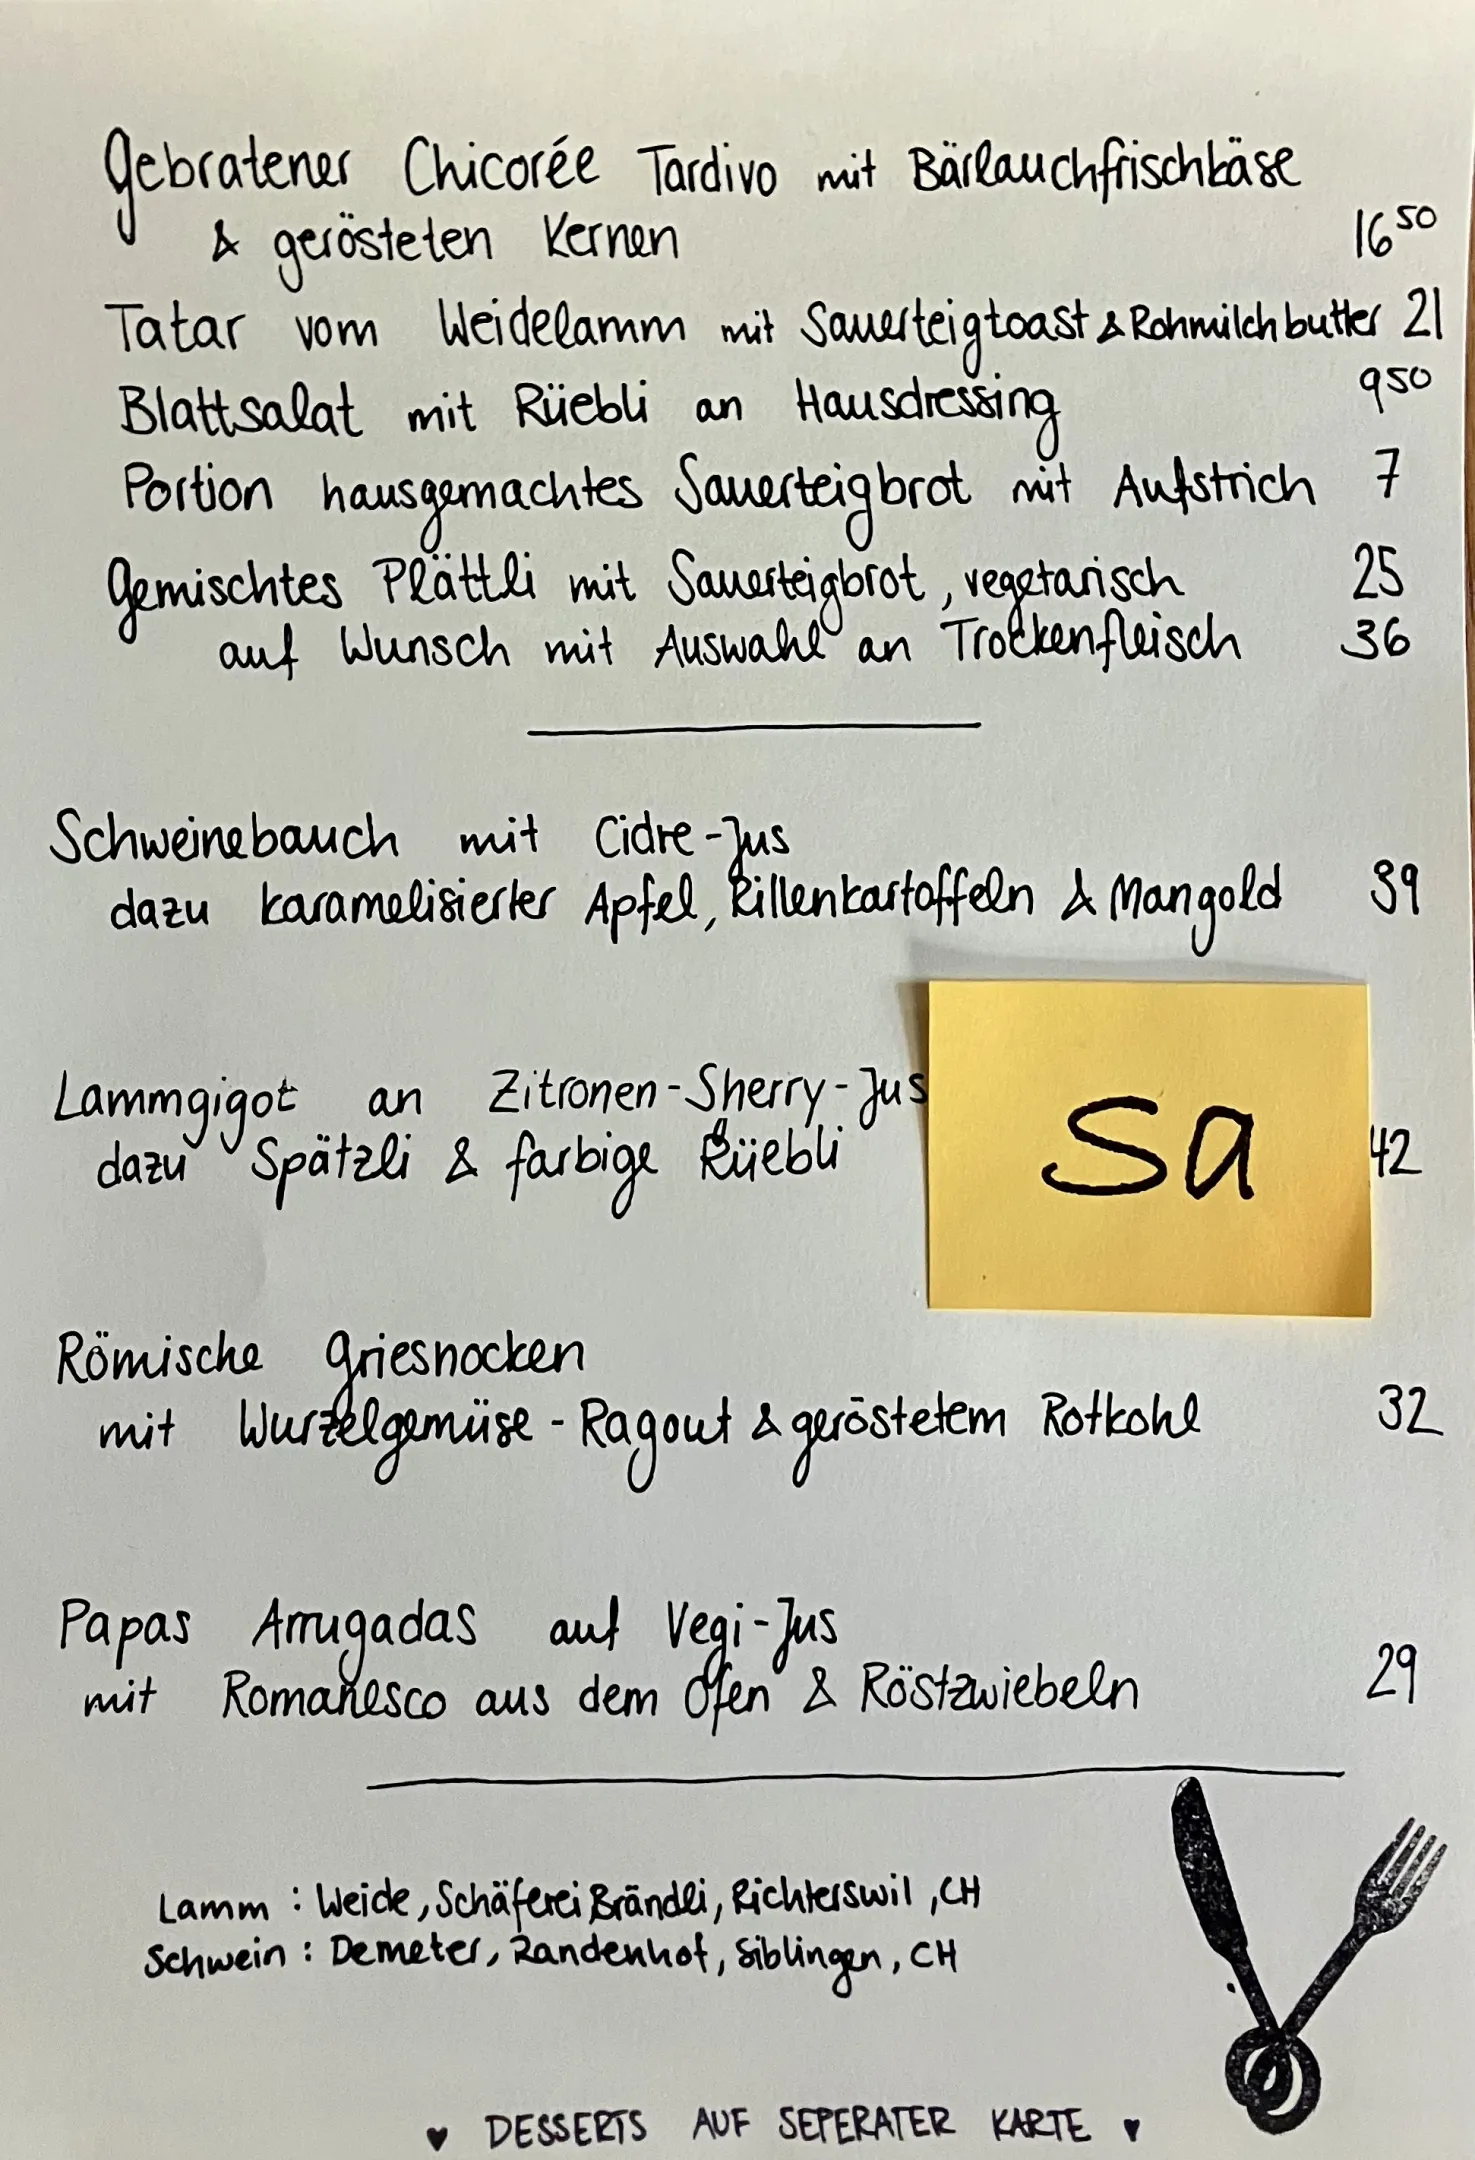 Gebratener Chicorée Tardivo mit Bärlauchfrischkäse
& gerösteten Kernen 16 50
Tatar vom Weidelamm mit Sauerteigtoast & Rohmilchbutter 21
Blattsalat mit Rüebli an Hausdressing 9 50
Portion hausgemachtes Sauerteigbrot mit Aufstrich 7
Gemischtes Plättli mit Sauerteigbrot, vegetarisch 25
auf Wunsch mit Auswahl an Trockenfleisch 36
Schweinebauch mit Cidre-Jus
dazu karamelisierter Apfel, Rillenkartoffeln & Mangold 39
Lammgigot an Zitronen-Sherry-Jus
dazu Spätzli & farbige Rüebli 42
Sa
Römische Griesnocken
mit Wurzelgemüse-Ragout & geröstetem Rotkohl 32
Papas Arrugadas auf Vegi-Jus
mit Romanesco aus dem Ofen & Röstzwiebeln 29
Lamm : Weide, Schäferei Brändli, Richterswil, CH
Schwein : Demeter, Randenhof, Siblingen, CH
♥ DESSERTS AUF SEPERATER KARTE ♥